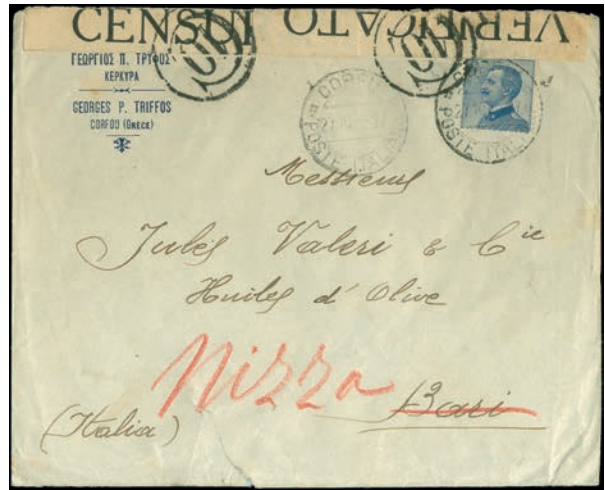 CENSUR
VERIFICATO
ΓΕΩΡΓΙΟΣ Π. ΤΡΥΦΟΣ
ΚΕΡΚΥΡΑ
GEORGES P. TRIFFOS
CORFOU (GRECE)
POSTE ITAL
POSTE ITAL
Messieurs
Jules Valeri & Cie
Huiles d'Olive
Nizza
Bari
(Italia)